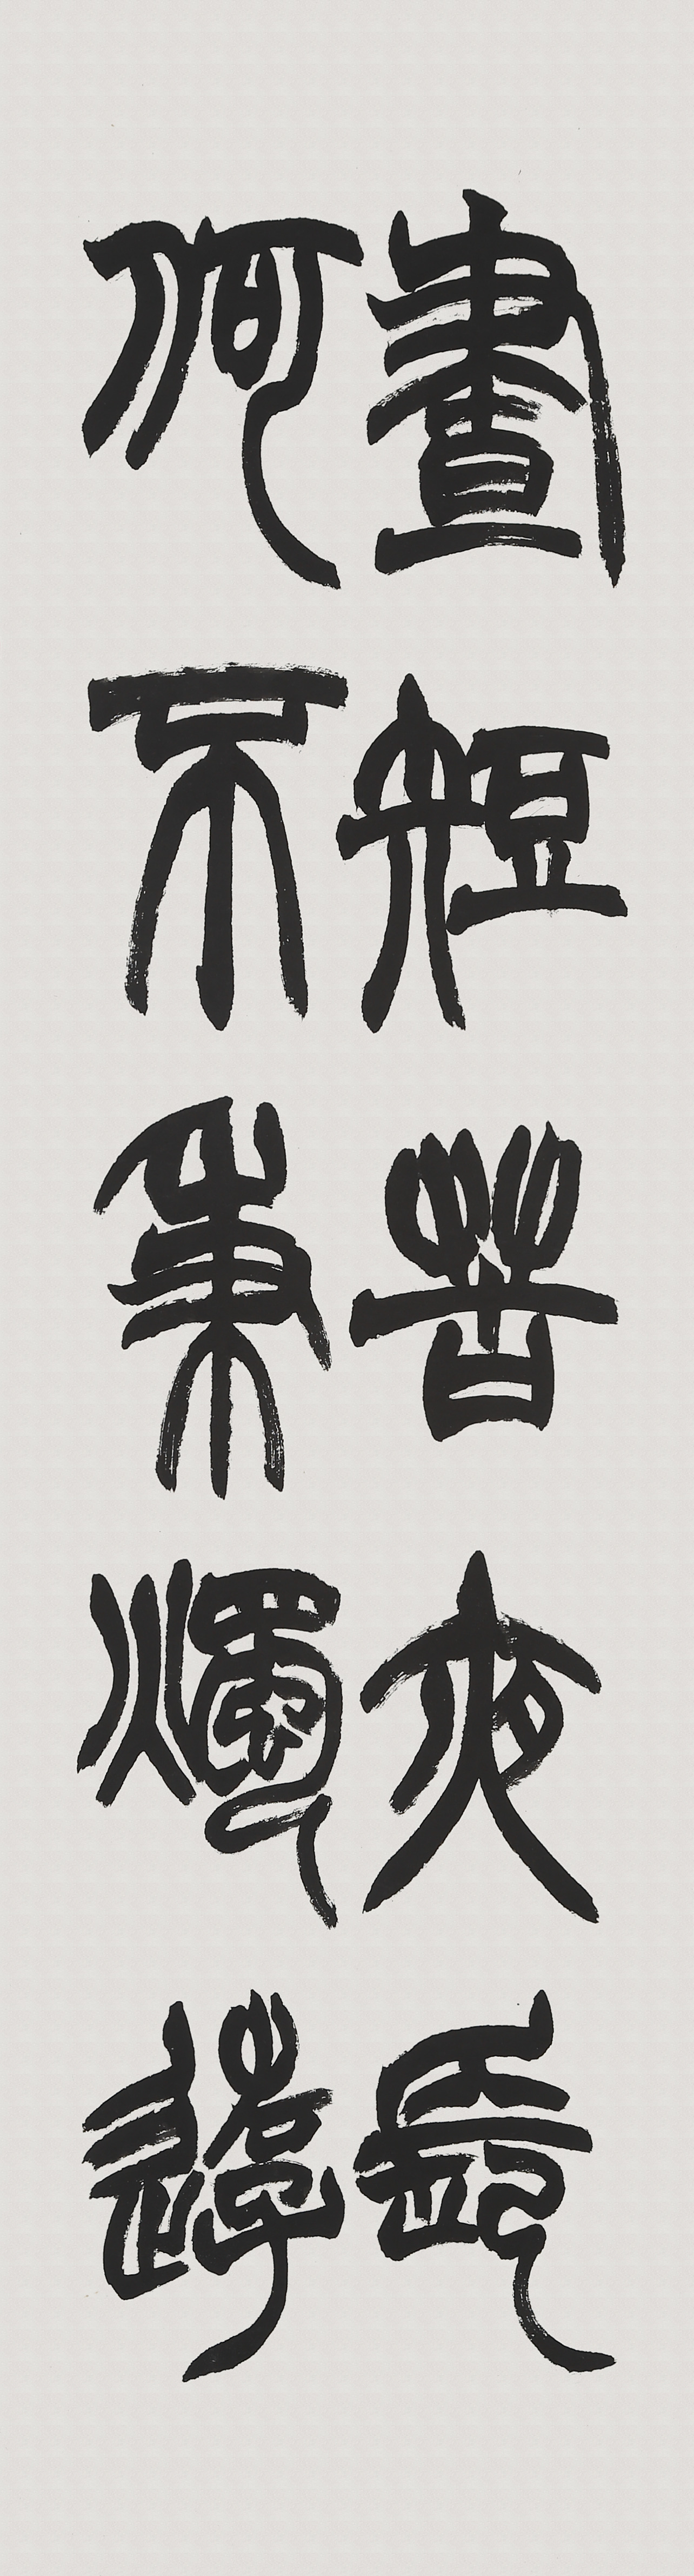 晝短苦夜長
何不秉燭遊